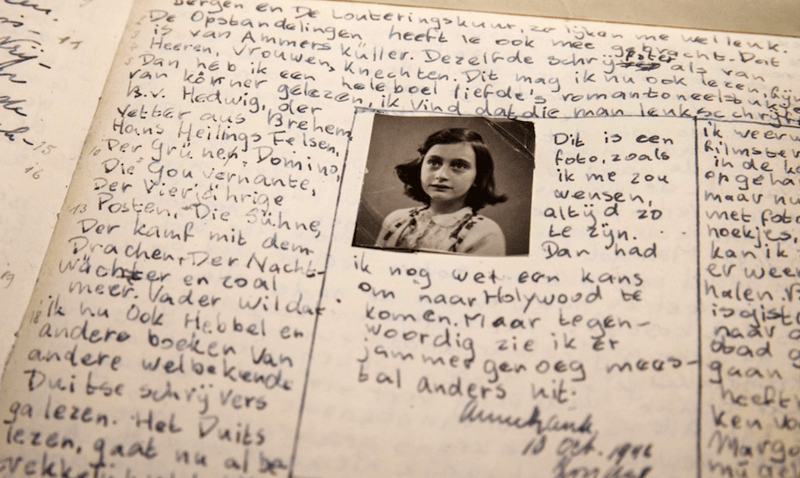 bergen en De Louteringskuur, zo lijken me wel leuk.
De Opstandelingen, heeft ie ook mee gebracht. Dat
is van Ammers küller. Dezelfde schrijfster als van
Heeren, Vrouwen, Knechten. Dit mag ik nu ook lezen, fijn
Dan heb ik een heleboel liefde's romantoneelstukjes
van körner gelezen, ik vind dat die man leuk schrijft
B.v. Hedwig, der
vetter aus Brehem,
Hans Heilings Felsen,
Der Grünen Domino,
Die Gouvernante,
Der Vierjährige
Posten, Die Sühne,
Der kamf mit dem
Drachen, Der Nacht-
wächter en zoal
meer. Vader wil dat
ik nu ook Hebbel en
andere boeken van
andere welbekende
Duitse schrijvers
ga lezen. Het Duits
lezen, gaat nu al be-
trekkelijk
Dit is een
foto, zoals
ik me zou
wensen,
altijd zo
te zijn.
Dan had
ik nog wel een kans
om naar Holywood te
komen. Maar tegen-
woordig zie ik er
jammer genoeg mees-
tal anders uit.
Annefrank.
18 Oct. 1942
Zondag
ik weer
filmster
in de k
opgeha
maar nu
met foto
hoekjes,
kan ik
er weer
halen.
naar
gaan
heeft
ken vo
Margo
15
16